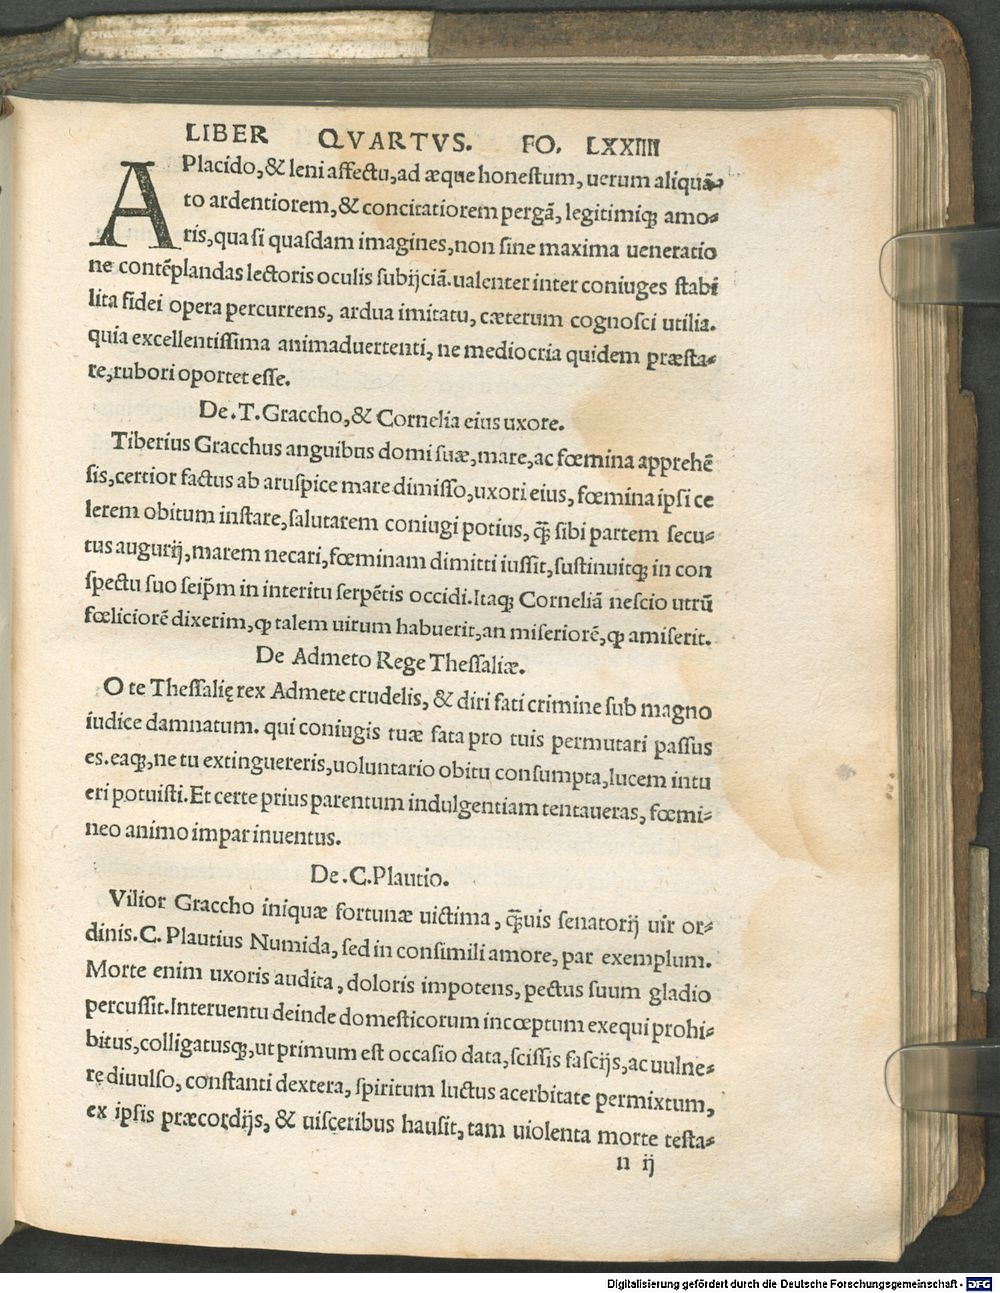 LIBER QVARTVS. FO. LXXIIII
A Placido, & leni affectu, ad æque honeſtum, uerum aliquã⸗
to ardentiorem, & concitatiorem pergã, legitimiq́; amo⸗
ris, quaſi quaſdam imagines, non ſine maxima ueneratio
ne contẽplandas lectoris oculis ſubijciã. ualenter inter coniuges ſtabi
lita fidei opera percurrens, ardua imitatu, cæterum cognoſci utilia.
quia excellentiſſima animaduertenti, ne mediocria quidem præſta⸗
re, rubori oportet eſſe.
De. T. Graccho, & Cornelia eius uxore.
Tiberius Gracchus anguibus domi ſuæ, mare, ac fœmina apprehẽ
ſis, certior factus ab aruſpice mare dimiſſo, uxori eius, fœmina ipſi ce
lerem obitum inſtare, ſalutarem coniugi potius, q̃ſibi partem ſecu⸗
tus augurij, marem necari, fœminam dimitti iuſſit, ſuſtinuitq́; in con
ſpectu ſuo ſeip̃m in interitu ſerpẽtis occidi. Itaq́; Corneliã neſcio utrũ
fœliciorẽ dixerim, ꝙ talem uirum habuerit, an miſeriorẽ, ꝙ amiſerit.
De Admeto Rege Theſſaliæ.
O te Theſſalię rex Admete crudelis, & diri fati crimine ſub magno
iudice damnatum. qui coniugis tuæ fata pro tuis permutari paſſus
es. eaq́;, ne tu extinguereris, uoluntario obitu conſumpta, lucem intu
eri potuiſti. Et certe prius parentum indulgentiam tentaueras, fœmi⸗
neo animo impar inuentus.
De. C. Plautio.
Vilior Graccho iniquæ fortunæ uictima, q̃uis ſenatorij uir or⸗
dinis. C. Plautius Numida, ſed in conſimili amore, par exemplum.
Morte enim uxoris audita, doloris impotens, pectus ſuum gladio
percuſſit. Interuentu deinde domeſticorum incœptum exequi prohi⸗
bitus, colligatusq́;, ut primum eſt occaſio data, ſciſſis faſcijs, ac uulne⸗
rę diuulſo, conſtanti dextera, ſpiritum luctus acerbitate permixtum,
ex ipſis præcordijs, & uiſceribus hauſit, tam uiolenta morte teſta⸗
n ij
Digitalisierung gefördert durch die Deutsche Forschungsgemeinschaft - DFG